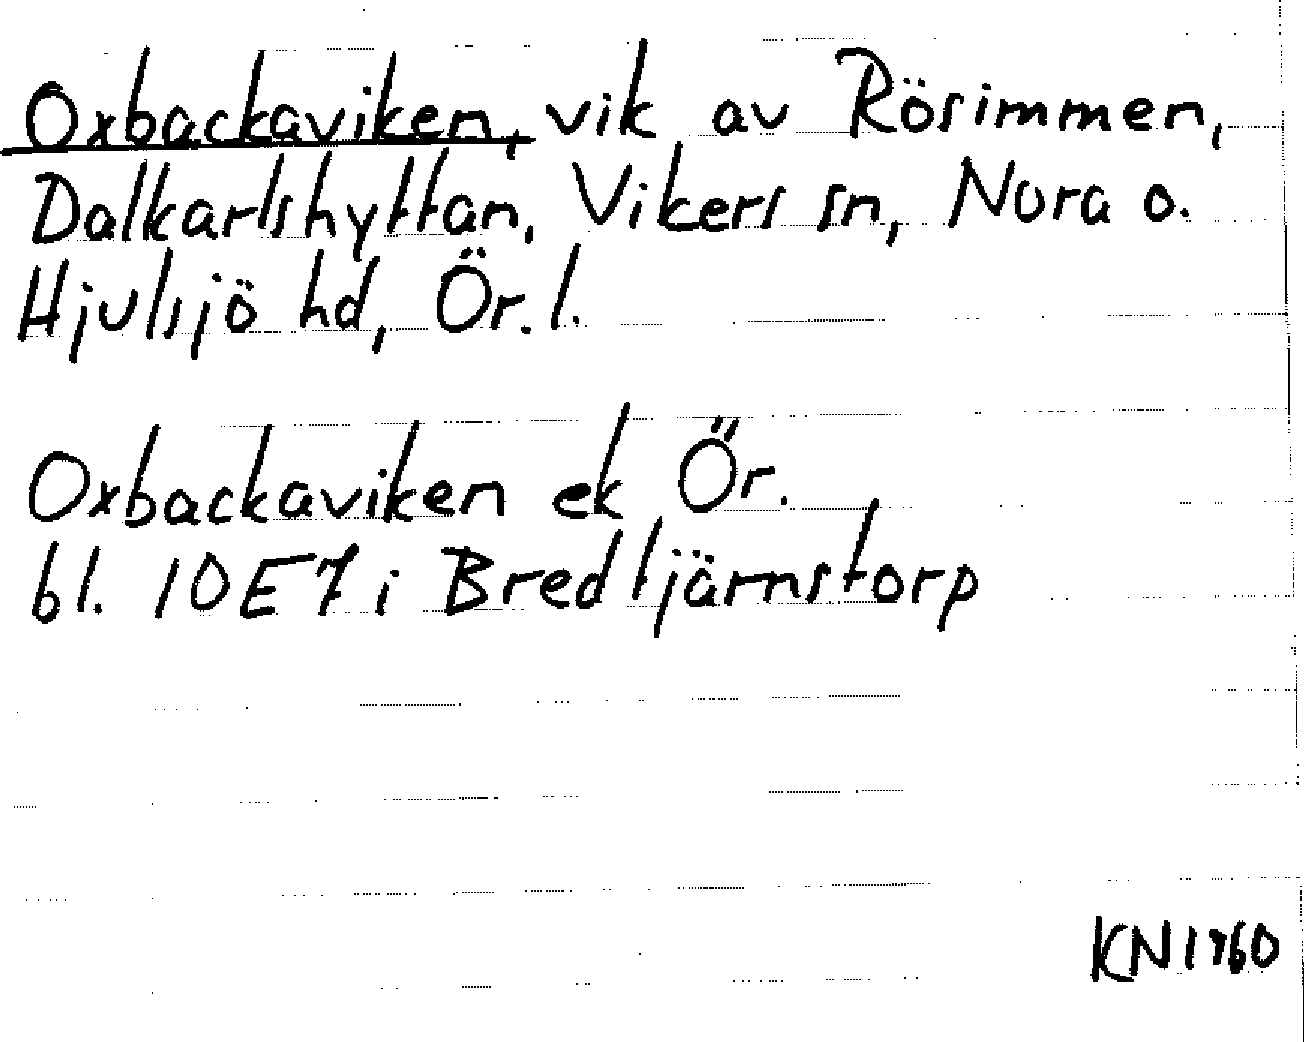 Oxbackaviken, vik av Rösimmen,
Dalkarlshyttan, Vikers sn, Nora o.
Hjulsjö hd, Ör. l.
Oxbackaviken ek Ör.
bl. 10E7 i Bredtjärnstorp
KN1960